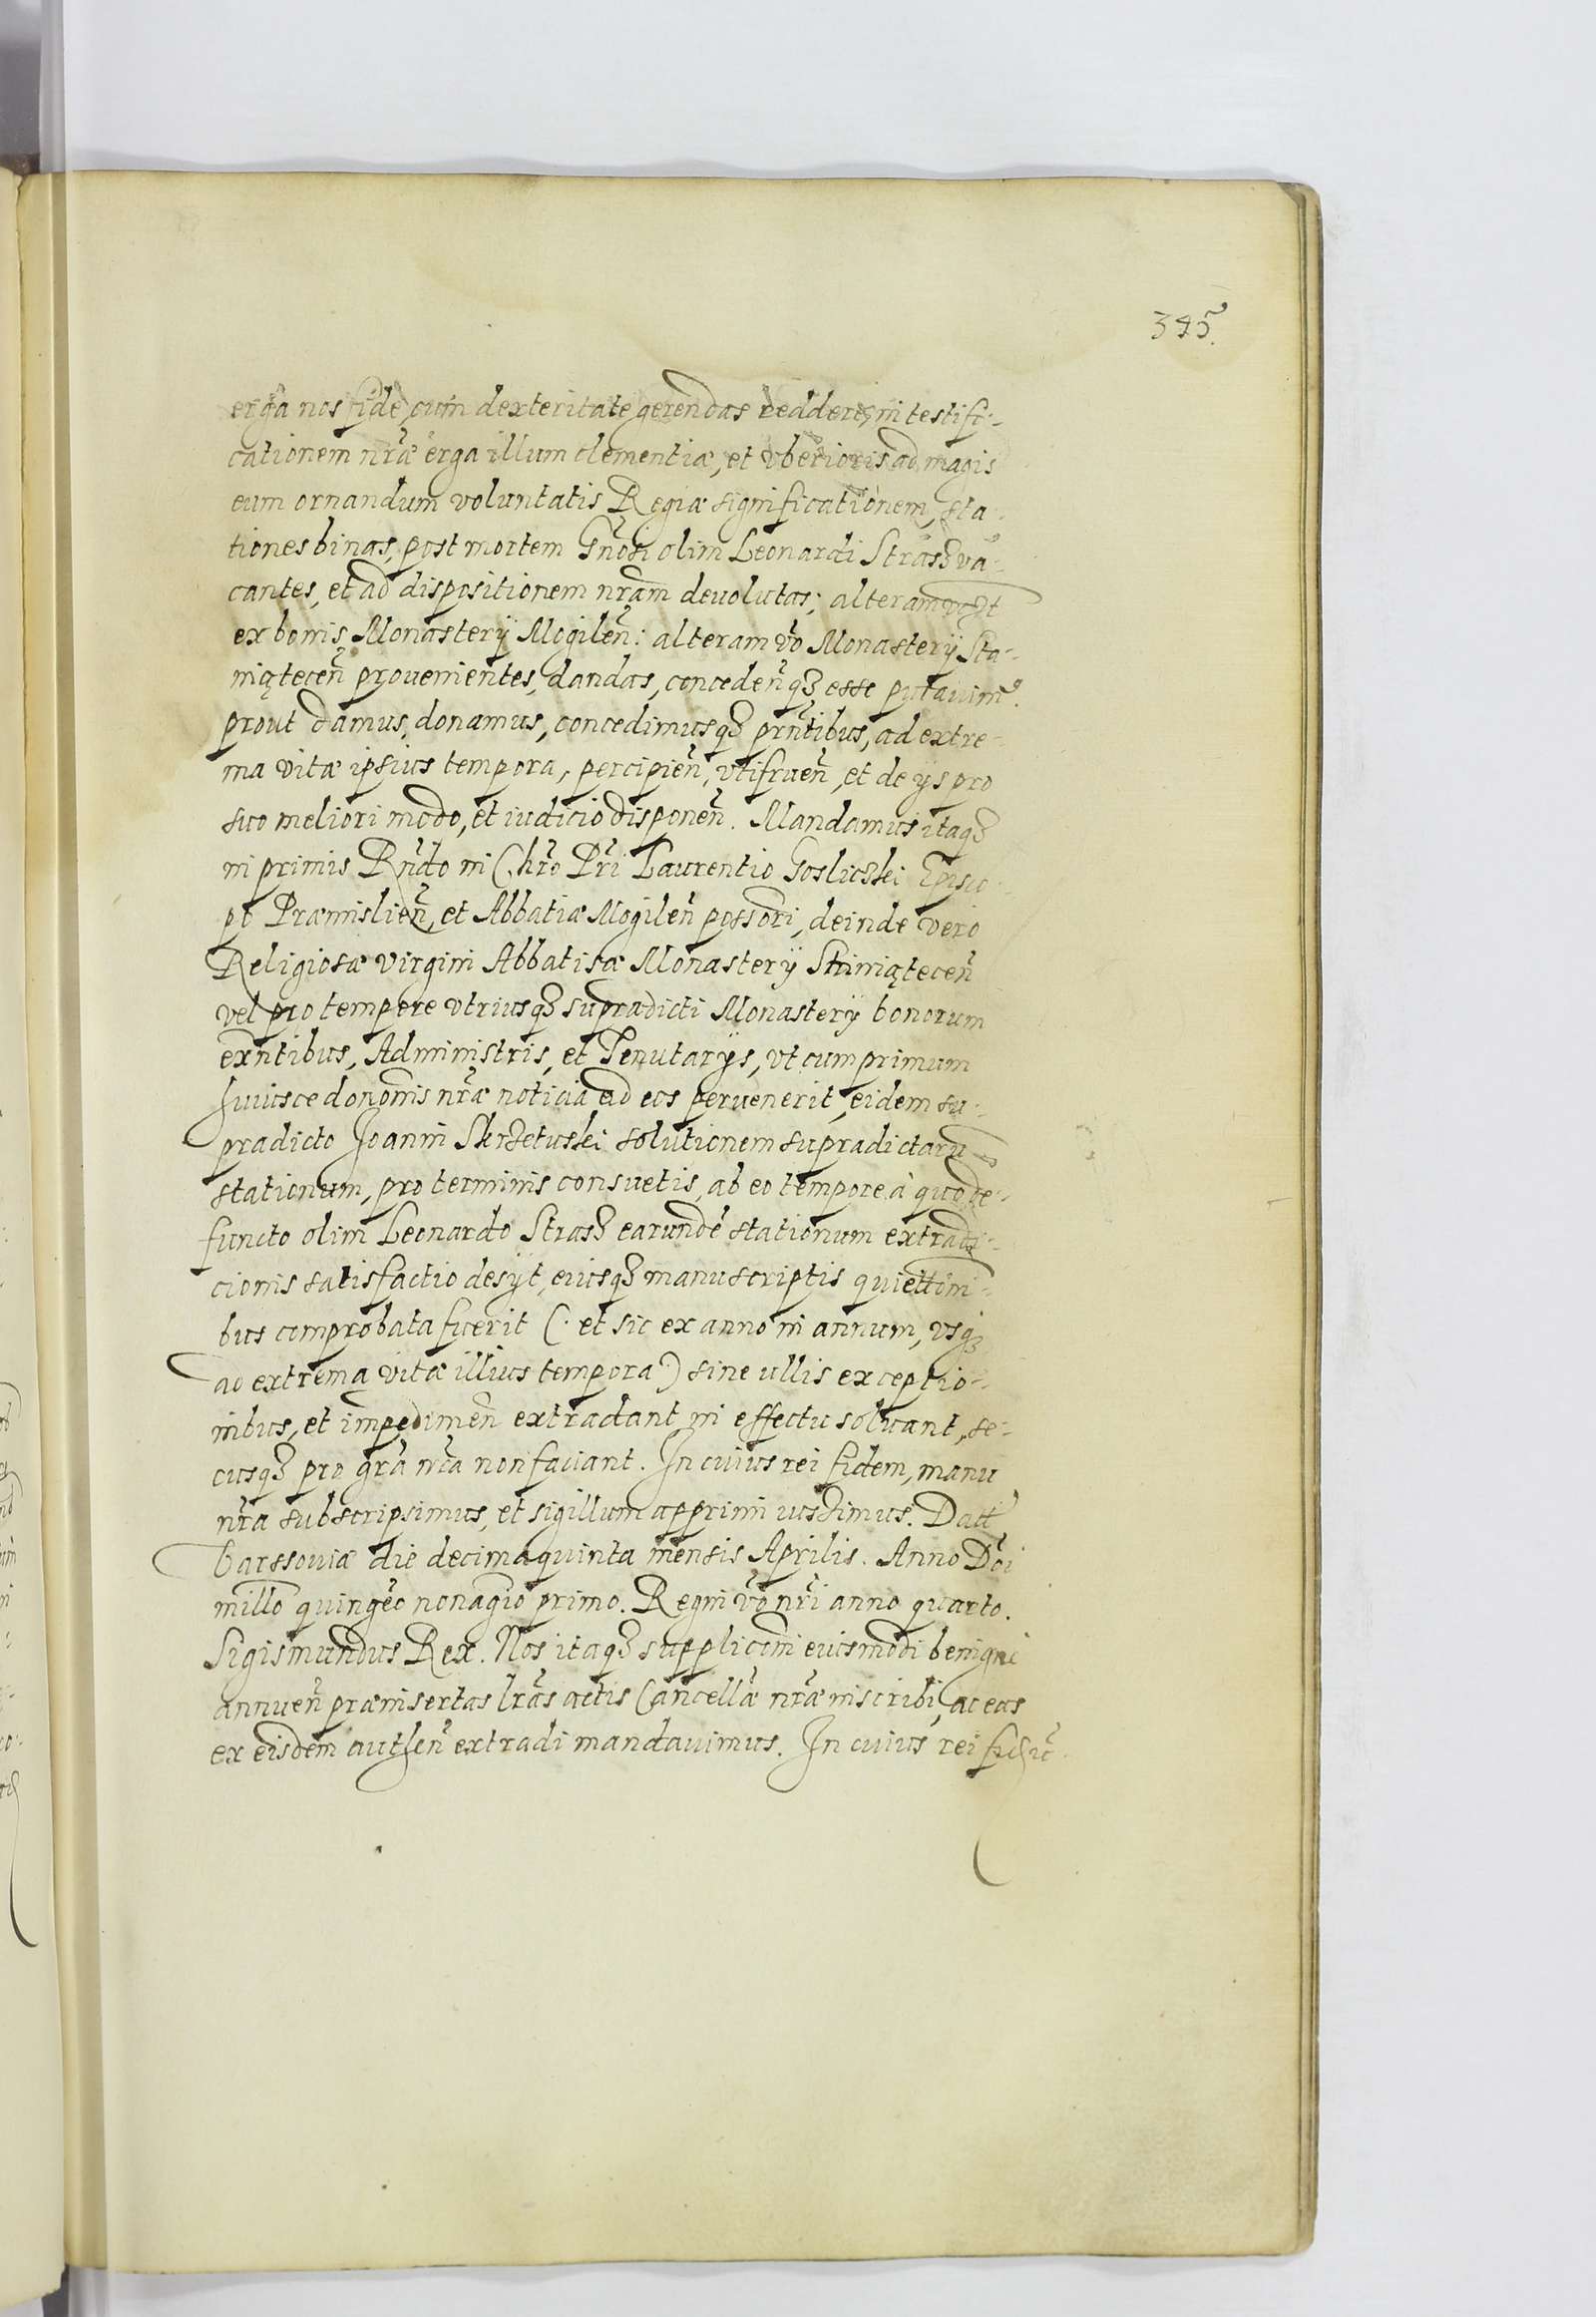 345.
erga nos fide, cum dexteritate gerendas redderet, in testifi-
cationem nr̃æ erga illum clementiæ, et vberioris ad magis
eum ornandum voluntatis Regiæ significationem, sta-
tiones binas, post mortem Gñosi olim Leonardi Strasz va-
cantes, et ad dispositionem nr̃am deuolutas; alteram
ex bonis Monasterÿ Mogileñ: alteram vo͂ Monasterÿ Sta-
niąteceñ prouenientes, dandas, concedeñq₃ esse putauim⁹.
prout damus, donamus, concedimusq₃ prñtibus, ad extre-
ma vitæ ipsius tempora, percipieñ, vtifrueñ, et de ijs pro
suo meliori modo, et iudicio disponeñ. Mandamus itaq₃
in primis Rñdo in Chr̃o Pr̃i Laurentio Gosliczki Episco-
po Præmislieñ, et Abbatiæ Mogileñ possori, deinde vero
Religiosæ virgini Abbatisæ Monasterÿ Staniąteceñ
vel pro tempore vtriusq₃ supradicti Monasterÿ bonorum
exñtibus, Administris, et Tenutarÿs, vt cum primum
huiusce dononis nr̃æ noticia ad eos peruenerit, eidem su-
pradicto Joanni Skrzetuski solutionem supradictaru
stationum, pro terminis consuetis, ab eo tempore à quo de-
functo olim Leonardo Strasz earundẽ stationum extradi-
cionis satisfactio desÿt, eiusq₃ manuscriptis quiettõni-
bus comprobata fuerit (· et sic ex anno in annum, vsq₃
ad extrema vitæ illius tempora) sine ullis exceptio-
nibus, et impedimeñ extradant in effectu soluant, se-
cusq₃ pro gr̃a nr̃a non faciant. In cuius rei fidem, manu
nr̃a subscripsimus, et sigillum apprimi iussimus. Datt
Varssouiæ die decima quinta mensis Aprilis. Anno Dõi
millo quingẽo nonagio primo. Regni vo͂ nr̃i anno quarto.
Sigismundus Rex. Nos itaq₃ supplicõni eiusmodi benigne
annueñ præinsertas lr̃as actis Cancellæ nr̃æ inscribi, ac eas
ex eisdem autheñ extradi mandauimus. In cuius rei